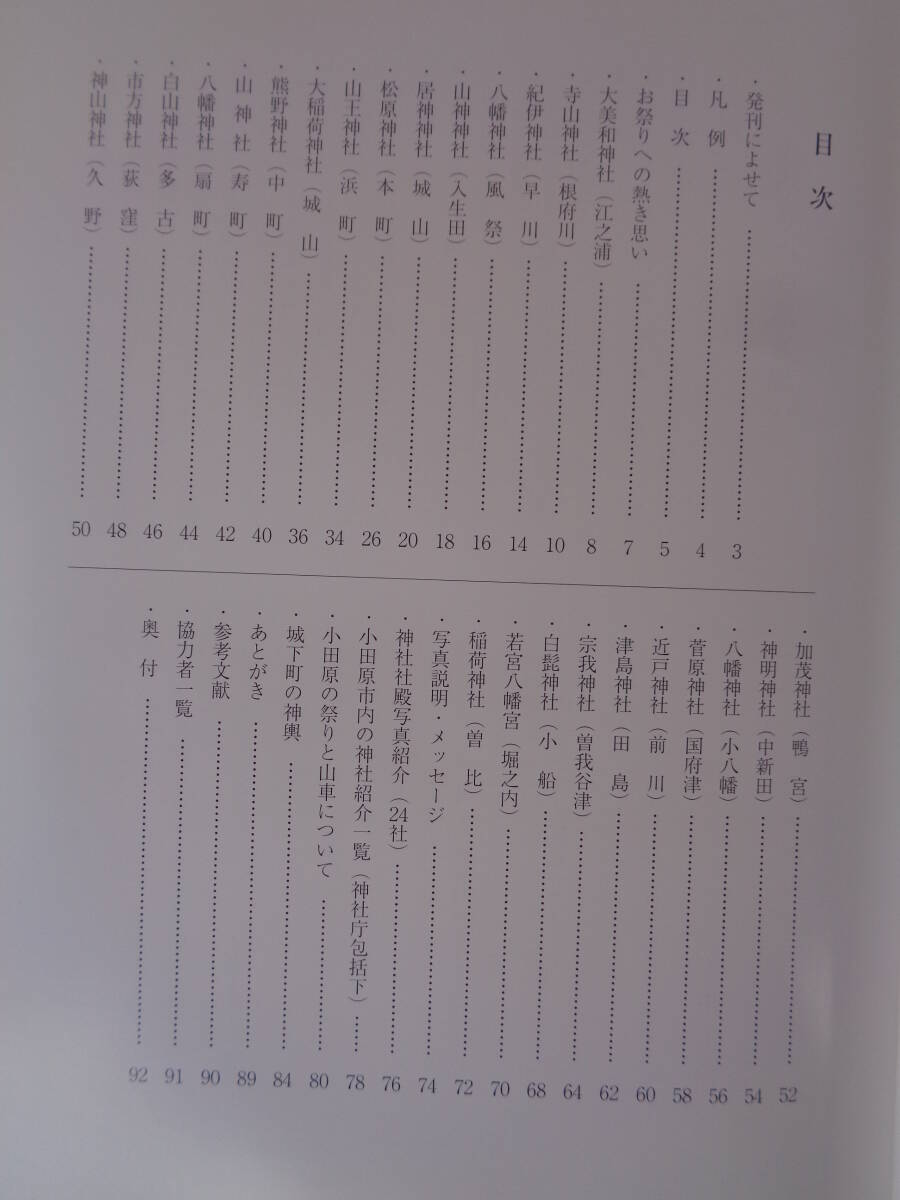 目次
・発刊によせて……………………………3
・凡例……………………………4
・目次……………………………5
・お祭りへの熱き思い……………………………7
・大美和神社（江之浦）……………………………8
・寺山神社（根府川）……………………………10
・紀伊神社（早川）……………………………14
・八幡神社（風祭）……………………………16
・山神神社（入生田）……………………………18
・居神神社（城山）……………………………20
・松原神社（本町）……………………………26
・山王神社（浜町）……………………………34
・大稲荷神社（城山）……………………………36
・熊野神社（中町）……………………………40
・山神社（寿町）……………………………42
・八幡神社（扇町）……………………………44
・白山神社（多古）……………………………46
・市方神社（荻窪）……………………………48
・神山神社（久野）……………………………50
・加茂神社（鴨宮）……………………………52
・神明神社（中新田）……………………………54
・八幡神社（小八幡）……………………………56
・菅原神社（国府津）……………………………58
・近戸神社（前川）……………………………60
・津島神社（田島）……………………………62
・宗我神社（曽我谷津）……………………………64
・白髭神社（小船）……………………………68
・若宮八幡宮（堀之内）……………………………70
・稲荷神社（曽比）……………………………72
・写真説明・メッセージ……………………………74
・神社社殿写真紹介（24社）……………………………76
・小田原市内の神社紹介一覧（神社庁包括下）……78
・小田原の祭りと山車について……………………………80
・城下町の神輿……………………………84
・あとがき……………………………89
・参考文献……………………………90
・協力者一覧……………………………91
・奥付……………………………92